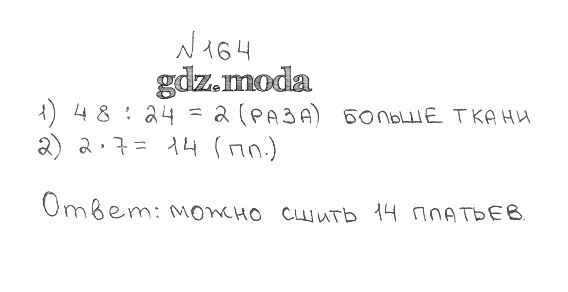 № 164
gdz.moda
1) 48 : 24 = 2 (РАЗА) БОЛЬШЕ ТКАНИ
2) 2 · 7 = 14 (ПЛ.)
Ответ: можно сшить 14 платьев.